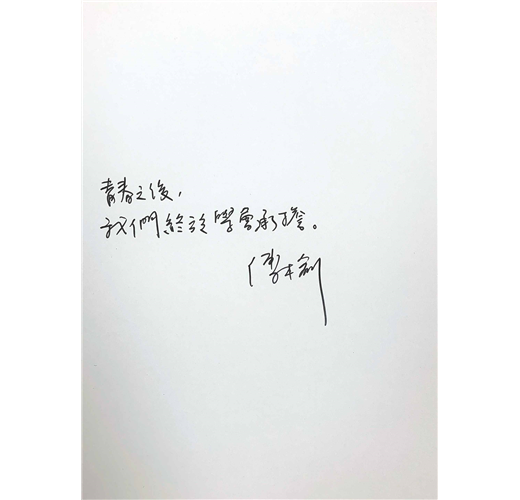 青春之後，
我們終於學會承擔。
傅榆